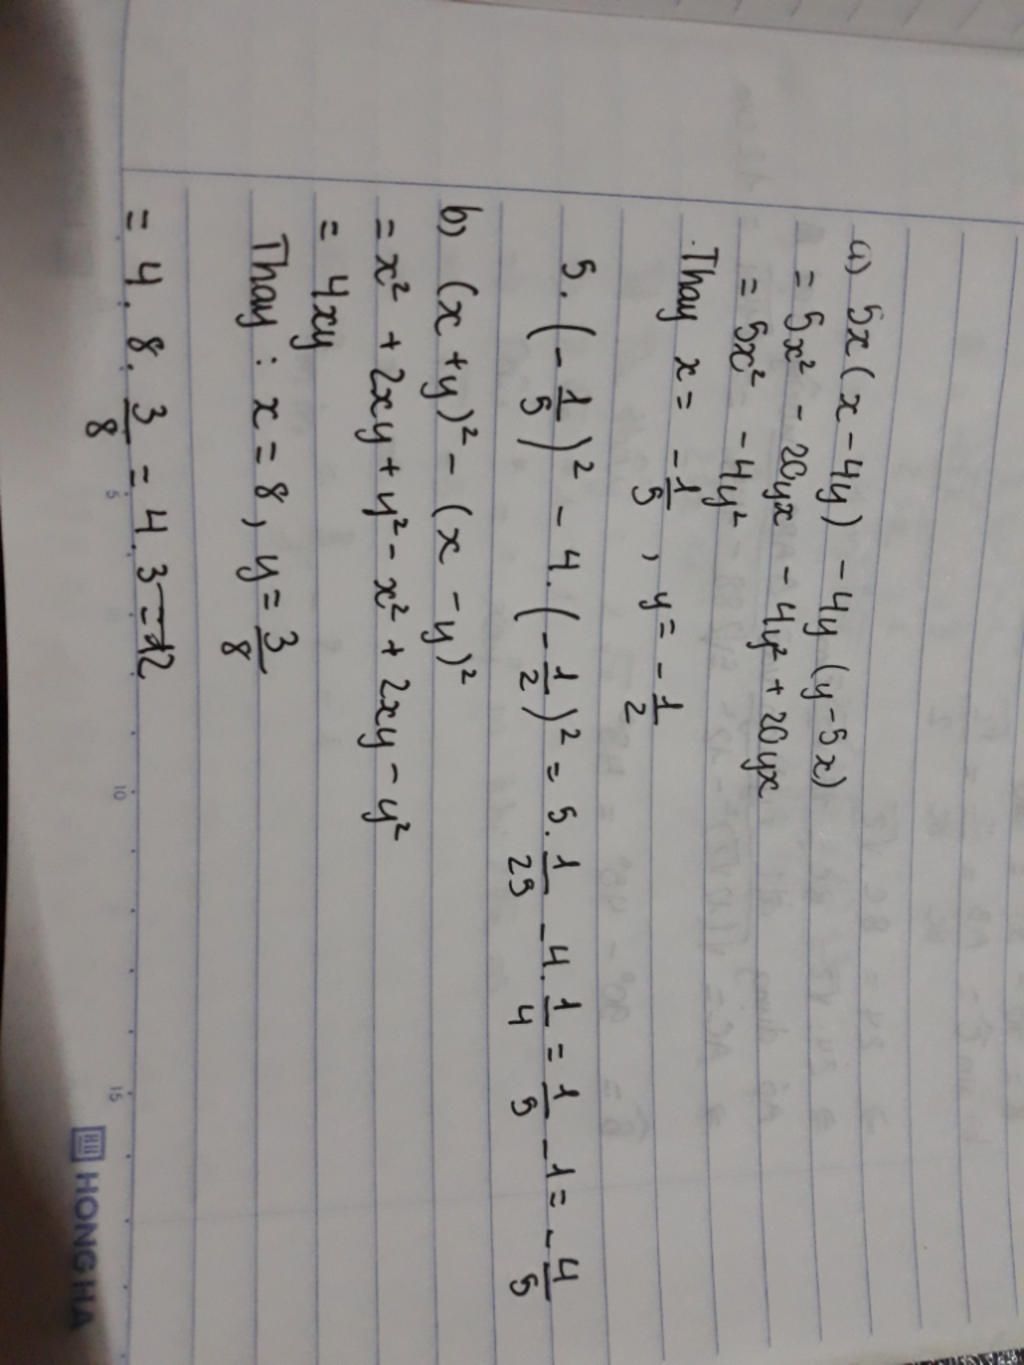 a) 5x(x-4y) - 4y(y-5x)
= 5x² - 20yx - 4y² + 20yx
= 5x² - 4y²
Thay x = -1/5, y = -1/2
5.(-1/5)² - 4.(-1/2)² = 5.1/25 - 4.1/4 = 1/5 - 1 = -4/5
b) (x+y)² - (x-y)²
= x² + 2xy + y² - x² + 2xy - y²
= 4xy
Thay : x = 8, y = 3/8
= 4.8.3/8 = 4.3 = 12
5 10 15
HONG HA